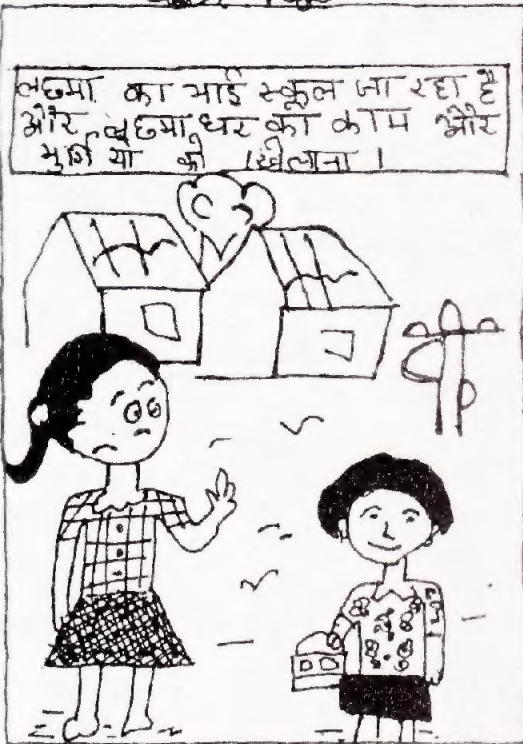 लछमा का भाई स्कूल जा रहा है
और लछमा घर का काम और
मुर्गियो को खिलाना ।